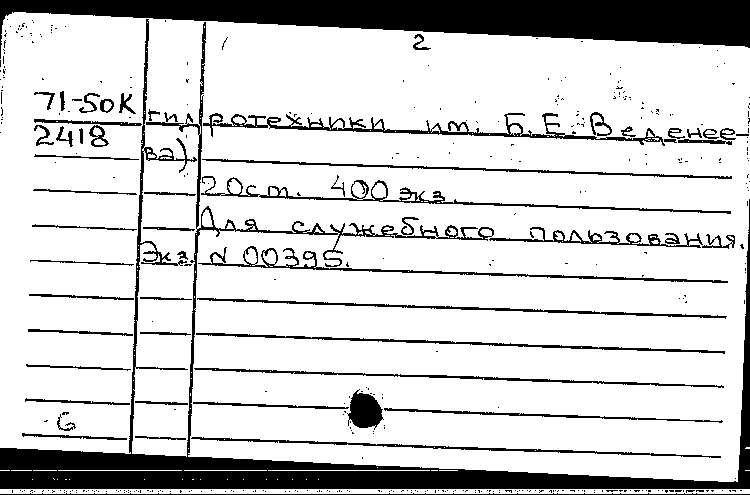 2
71-50К гидротехники им. Б.Е. Веденее-
2418 ва).
20 ст. 400 экз.
Для служебного пользования.
Экз. N 00395.
6